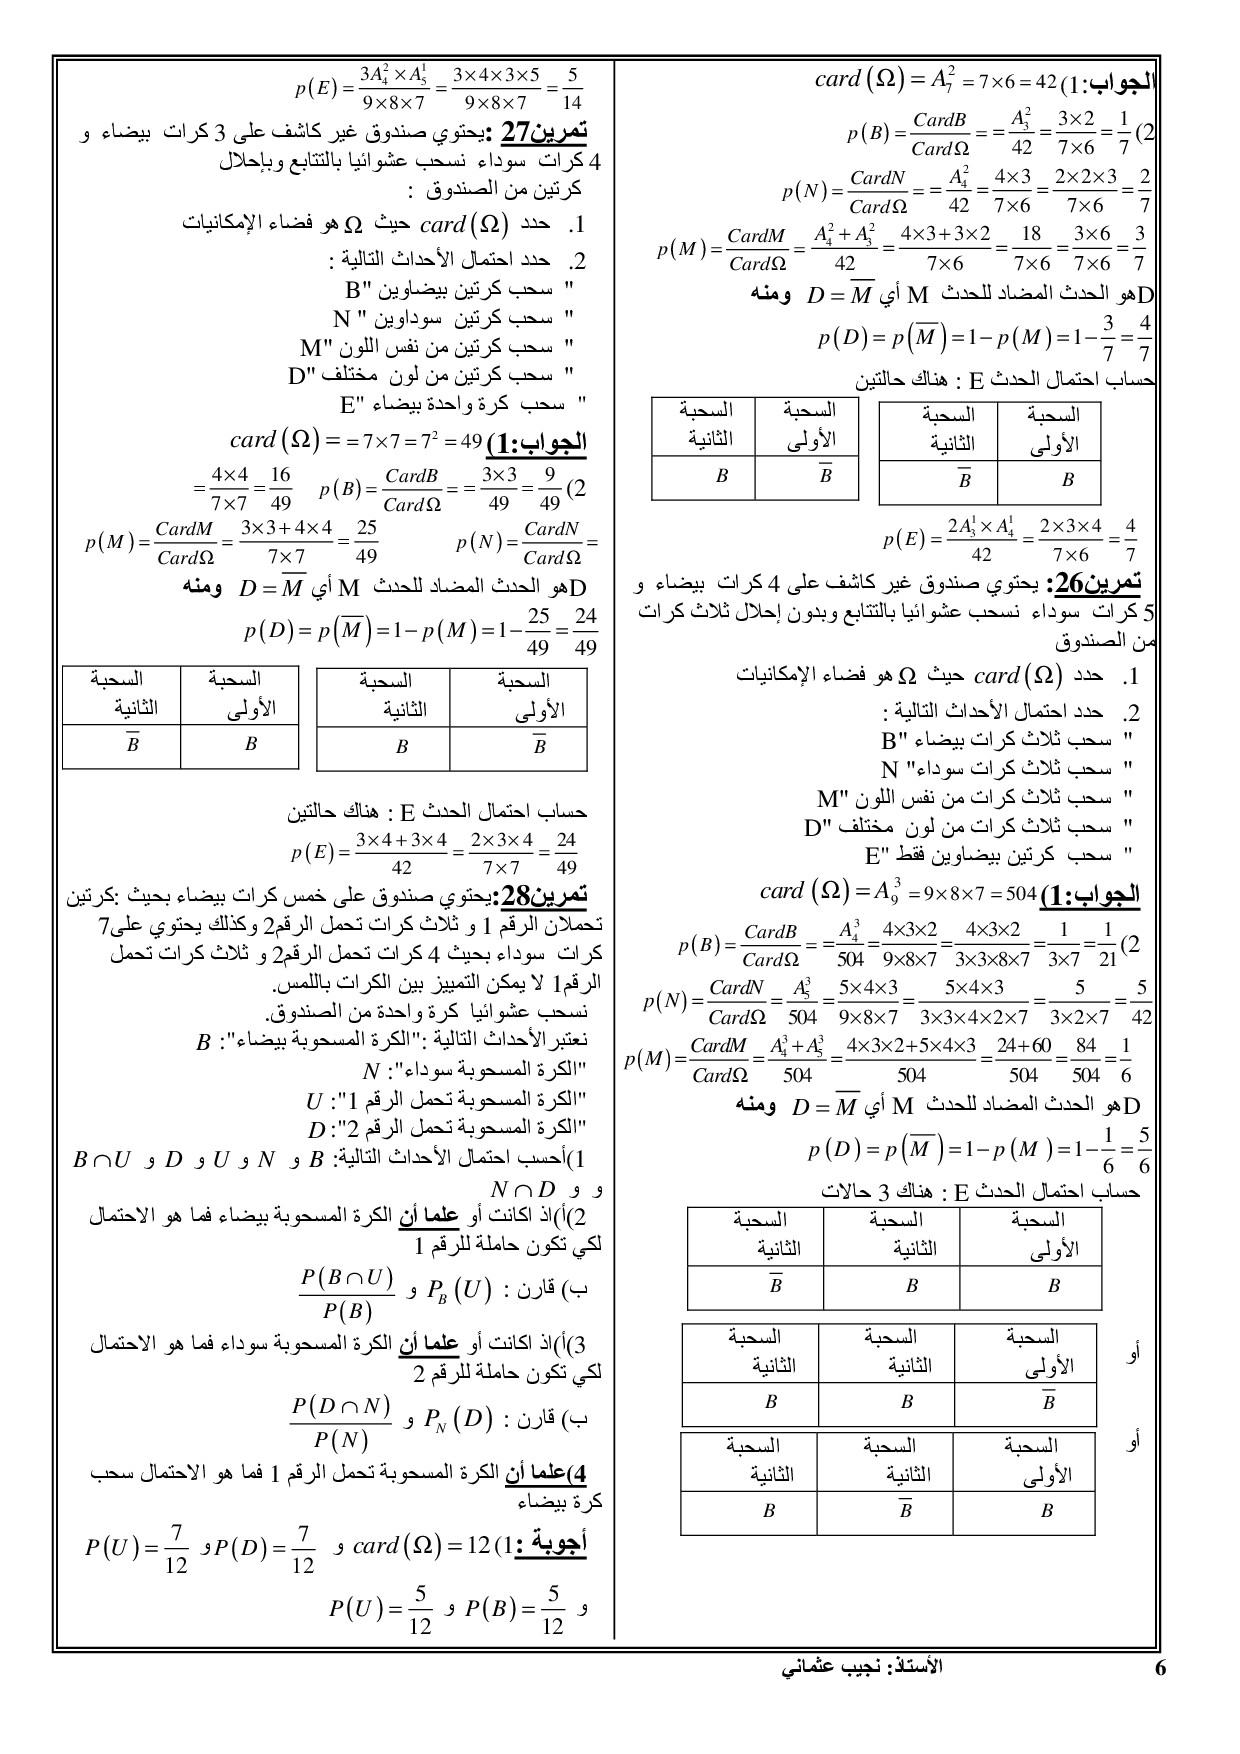 الجواب:1) card(Ω) = A_7^2 = 7×6 = 42
2) p(B) = CardB/CardΩ = = A_3^2/42 = 3×2/7×6 = 1/7
p(N) = CardN/CardΩ = = A_4^2/42 = 4×3/7×6 = 2×2×3/7×6 = 2/7
p(M) = CardM/CardΩ = A_4^2 + A_3^2/42 = 4×3+3×2/7×6 = 18/7×6 = 3×6/7×6 = 3/7
Dهو الحدث المضاد للحدث M أي D = M̅ ومنه
p(D) = p(M̅) = 1 − p(M) = 1 − 3/7 = 4/7
حساب احتمال الحدث E : هناك حالتين
السحبة الأولى السحبة الثانية
B B̅
السحبة الأولى السحبة الثانية
B̅ B
p(E) = 2A_3^1 × A_4^1/42 = 2×3×4/7×6 = 4/7
تمرين26: يحتوي صندوق غير كاشف على 4 كرات بيضاء و
5 كرات سوداء نسحب عشوائيا بالتتابع وبدون إحلال ثلاث كرات
من الصندوق
1. حدد card(Ω) حيث Ω هو فضاء الإمكانيات
2. حدد احتمال الأحداث التالية :
" سحب ثلاث كرات بيضاء "B
" سحب ثلاث كرات سوداء" N
" سحب ثلاث كرات من نفس اللون "M
" سحب ثلاث كرات من لون مختلف "D
" سحب كرتين بيضاوين فقط "E
الجواب:1) card(Ω) = A_9^3 = 9×8×7 = 504
2) p(B) = CardB/CardΩ = = A_4^3/504 = 4×3×2/9×8×7 = 4×3×2/3×3×8×7 = 1/3×7 = 1/21
p(N) = CardN/CardΩ = A_5^3/504 = 5×4×3/9×8×7 = 5×4×3/3×3×4×2×7 = 5/3×2×7 = 5/42
p(M) = CardM/CardΩ = A_4^3 + A_5^3/504 = 4×3×2+5×4×3/504 = 24+60/504 = 84/504 = 1/6
Dهو الحدث المضاد للحدث M أي D = M̅ ومنه
p(D) = p(M̅) = 1 − p(M) = 1 − 1/6 = 5/6
حساب احتمال الحدث E : هناك 3 حالات
السحبة الأولى السحبة الثانية السحبة الثانية
B B B̅
أو
السحبة الأولى السحبة الثانية السحبة الثانية
B̅ B B
أو
السحبة الأولى السحبة الثانية السحبة الثانية
B B̅ B
p(E) = 3A_4^2 × A_5^1/9×8×7 = 3×4×3×5/9×8×7 = 5/14
تمرين27 :يحتوي صندوق غير كاشف على 3 كرات بيضاء و
4 كرات سوداء نسحب عشوائيا بالتتابع وبإحلال
كرتين من الصندوق :
1. حدد card(Ω) حيث Ω هو فضاء الإمكانيات
2. حدد احتمال الأحداث التالية :
" سحب كرتين بيضاوين "B
" سحب كرتين سوداوين " N
" سحب كرتين من نفس اللون "M
" سحب كرتين من لون مختلف "D
" سحب كرة واحدة بيضاء "E
الجواب:1) card(Ω) = = 7×7 = 7² = 49
2) p(B) = CardB/CardΩ = = 3×3/49 = 9/49 = 4×4/7×7 = 16/49
p(N) = CardN/CardΩ = p(M) = CardM/CardΩ = 3×3+4×4/7×7 = 25/49
Dهو الحدث المضاد للحدث M أي D = M̅ ومنه
p(D) = p(M̅) = 1 − p(M) = 1 − 25/49 = 24/49
السحبة الأولى السحبة الثانية
B̅ B
السحبة الأولى السحبة الثانية
B B̅
حساب احتمال الحدث E : هناك حالتين
p(E) = 3×4+3×4/42 = 2×3×4/7×7 = 24/49
تمرين28:يحتوي صندوق على خمس كرات بيضاء بحيث :كرتين
تحملان الرقم 1 و ثلاث كرات تحمل الرقم2 وكذلك يحتوي على7
كرات سوداء بحيث 4 كرات تحمل الرقم2 و ثلاث كرات تحمل
الرقم1 لا يمكن التمييز بين الكرات باللمس.
نسحب عشوائيا كرة واحدة من الصندوق.
نعتبرالأحداث التالية :"الكرة المسحوبة بيضاء": B
"الكرة المسحوبة سوداء": N
"الكرة المسحوبة تحمل الرقم 1": U
"الكرة المسحوبة تحمل الرقم 2": D
1)أحسب احتمال الأحداث التالية: B و N و U و D و B∩U
و و N∩D
2)أ)اذ اكانت أو علما أن الكرة المسحوبة بيضاء فما هو الاحتمال
لكي تكون حاملة للرقم 1
ب) قارن : P_B(U) و P(B∩U)/P(B)
3)أ)اذ اكانت أو علما أن الكرة المسحوبة سوداء فما هو الاحتمال
لكي تكون حاملة للرقم 2
ب) قارن : P_N(D) و P(D∩N)/P(N)
4)علما أن الكرة المسحوبة تحمل الرقم 1 فما هو الاحتمال سحب
كرة بيضاء
أجوبة :1) card(Ω) = 12 و P(D) = 7/12 و P(U) = 7/12
و P(B) = 5/12 و P(U) = 5/12
الأستاذ: نجيب عثماني
6